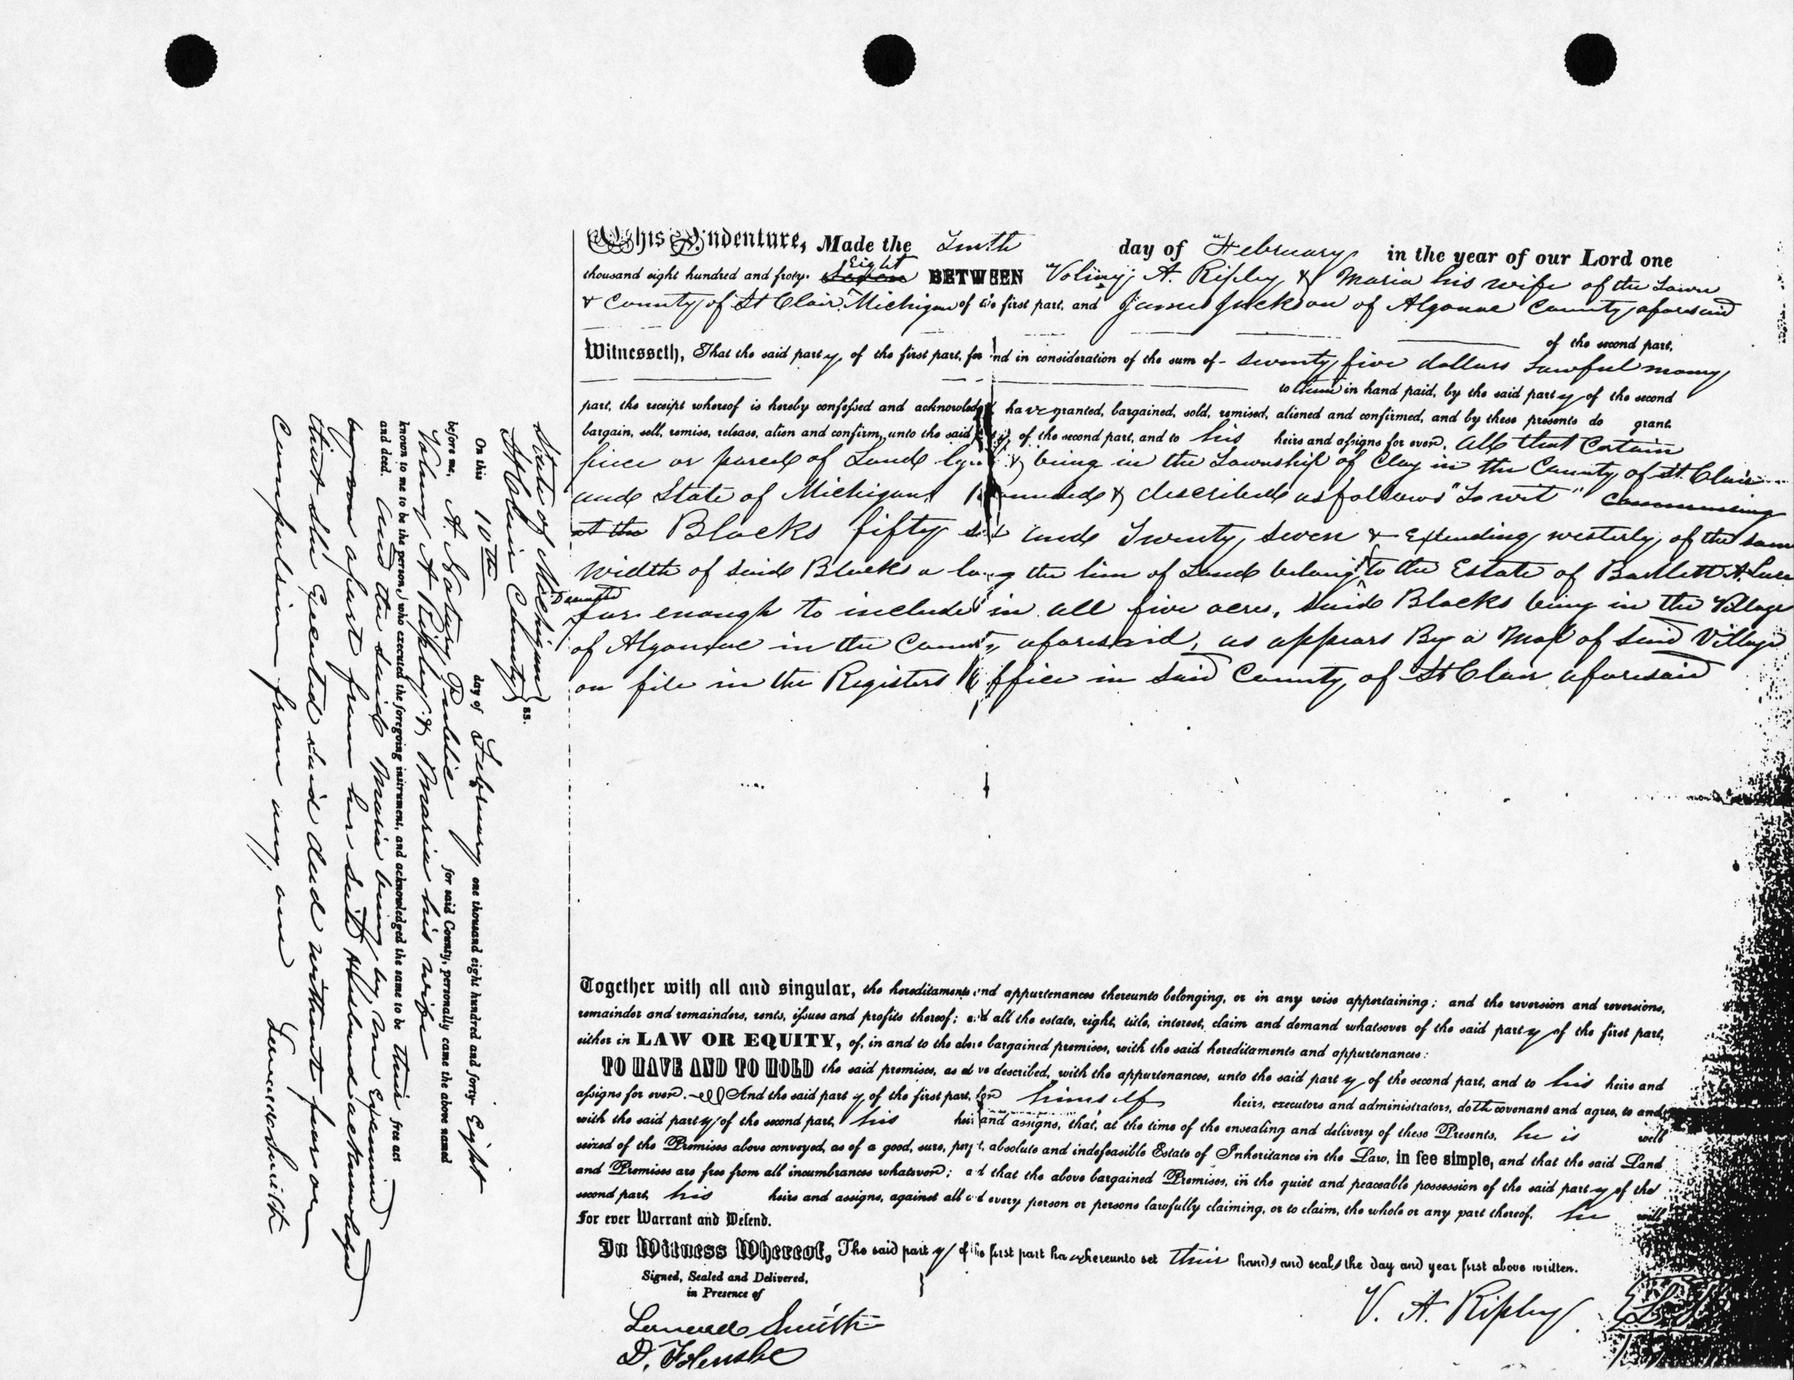 This Indenture, Made the Tenth day of February in the year of our Lord one
thousand eight hundred and forty- Seven Eight BETWEEN Volney A. Ripley & Maria his wife of the Town
& County of St Clair Michigan of the first part, and James Jackson of Algonac County aforesaid
of the second part,
Witnesseth, That the said party of the first part, for and in consideration of the sum of - seventy five dollars Lawful money
to them in hand paid, by the said party of the second
part, the receipt whereof is hereby confessed and acknowledged have granted, bargained, sold, remised, aliened and confirmed, and by these presents do grant,
bargain, sell, remise, release, alien and confirm, unto the said party of the second part, and to his heirs and assigns for ever, All that Certain
piece or parcel of Land lying & being in the Township of Clay in the County of St. Clair
and State of Michigan, bounded & described as follows "To wit" Commencing
at the Blocks fifty six and Twenty Seven & Extending westerly, of the same
width of said Blocks along the line of Land belonging to the Estate of Bartlett A. Luce
Deceased
far enough to include in all five acres, said Blocks being in the Village
of Algonac in the County aforesaid, as appears By a Map of said Village
on file in the Registers office in said County of St Clair aforesaid
Together with all and singular, the hereditaments and appurtenances thereunto belonging, or in any wise appertaining; and the reversion and reversions,
remainder and remainders, rents, issues and profits thereof; and all the estate, right, title, interest, claim and demand whatsoever of the said party of the first part,
either in LAW OR EQUITY, of, in and to the above bargained premises, with the said hereditaments and appurtenances:
TO HAVE AND TO HOLD the said premises, as above described, with the appurtenances, unto the said party of the second part, and to his heirs and
assigns for ever. And the said party of the first part, for himself heirs, executors and administrators, doth covenant and agree, to and
with the said party of the second part, his heirs and assigns, that, at the time of the ensealing and delivery of these Presents, he is well
seized of the Premises above conveyed, as of a good, sure, perfect, absolute and indefeasible Estate of Inheritance in the Law, in fee simple, and that the said Land
and Premises are free from all incumbrances whatever; and that the above bargained Premises, in the quiet and peaceable possession of the said party of the
second part, his heirs and assigns, against all and every person or persons lawfully claiming, or to claim, the whole or any part thereof, he will
For ever Warrant and Defend.
In Witness Whereof, The said party of the first part have hereunto set their hands and seals the day and year first above written.
Signed, Sealed and Delivered,
in Presence of
V. A. Ripley L.S
Leonard Smith
D.
State of Michigan
St Clair County } ss.
On this 10th day of February one thousand eight hundred and forty- Eight
before me, A Notary Public for said County, personally came the above named
Volney A Ripley & Maria his wife
known to me to be the persons who executed the foregoing instrument, and acknowledged the same to be their free act
and deed. And the said Maria being by me Examined
by me apart from her said Husband acknowledged
that she Executed said deed without fear or
compulsion from any one Leonard Smith